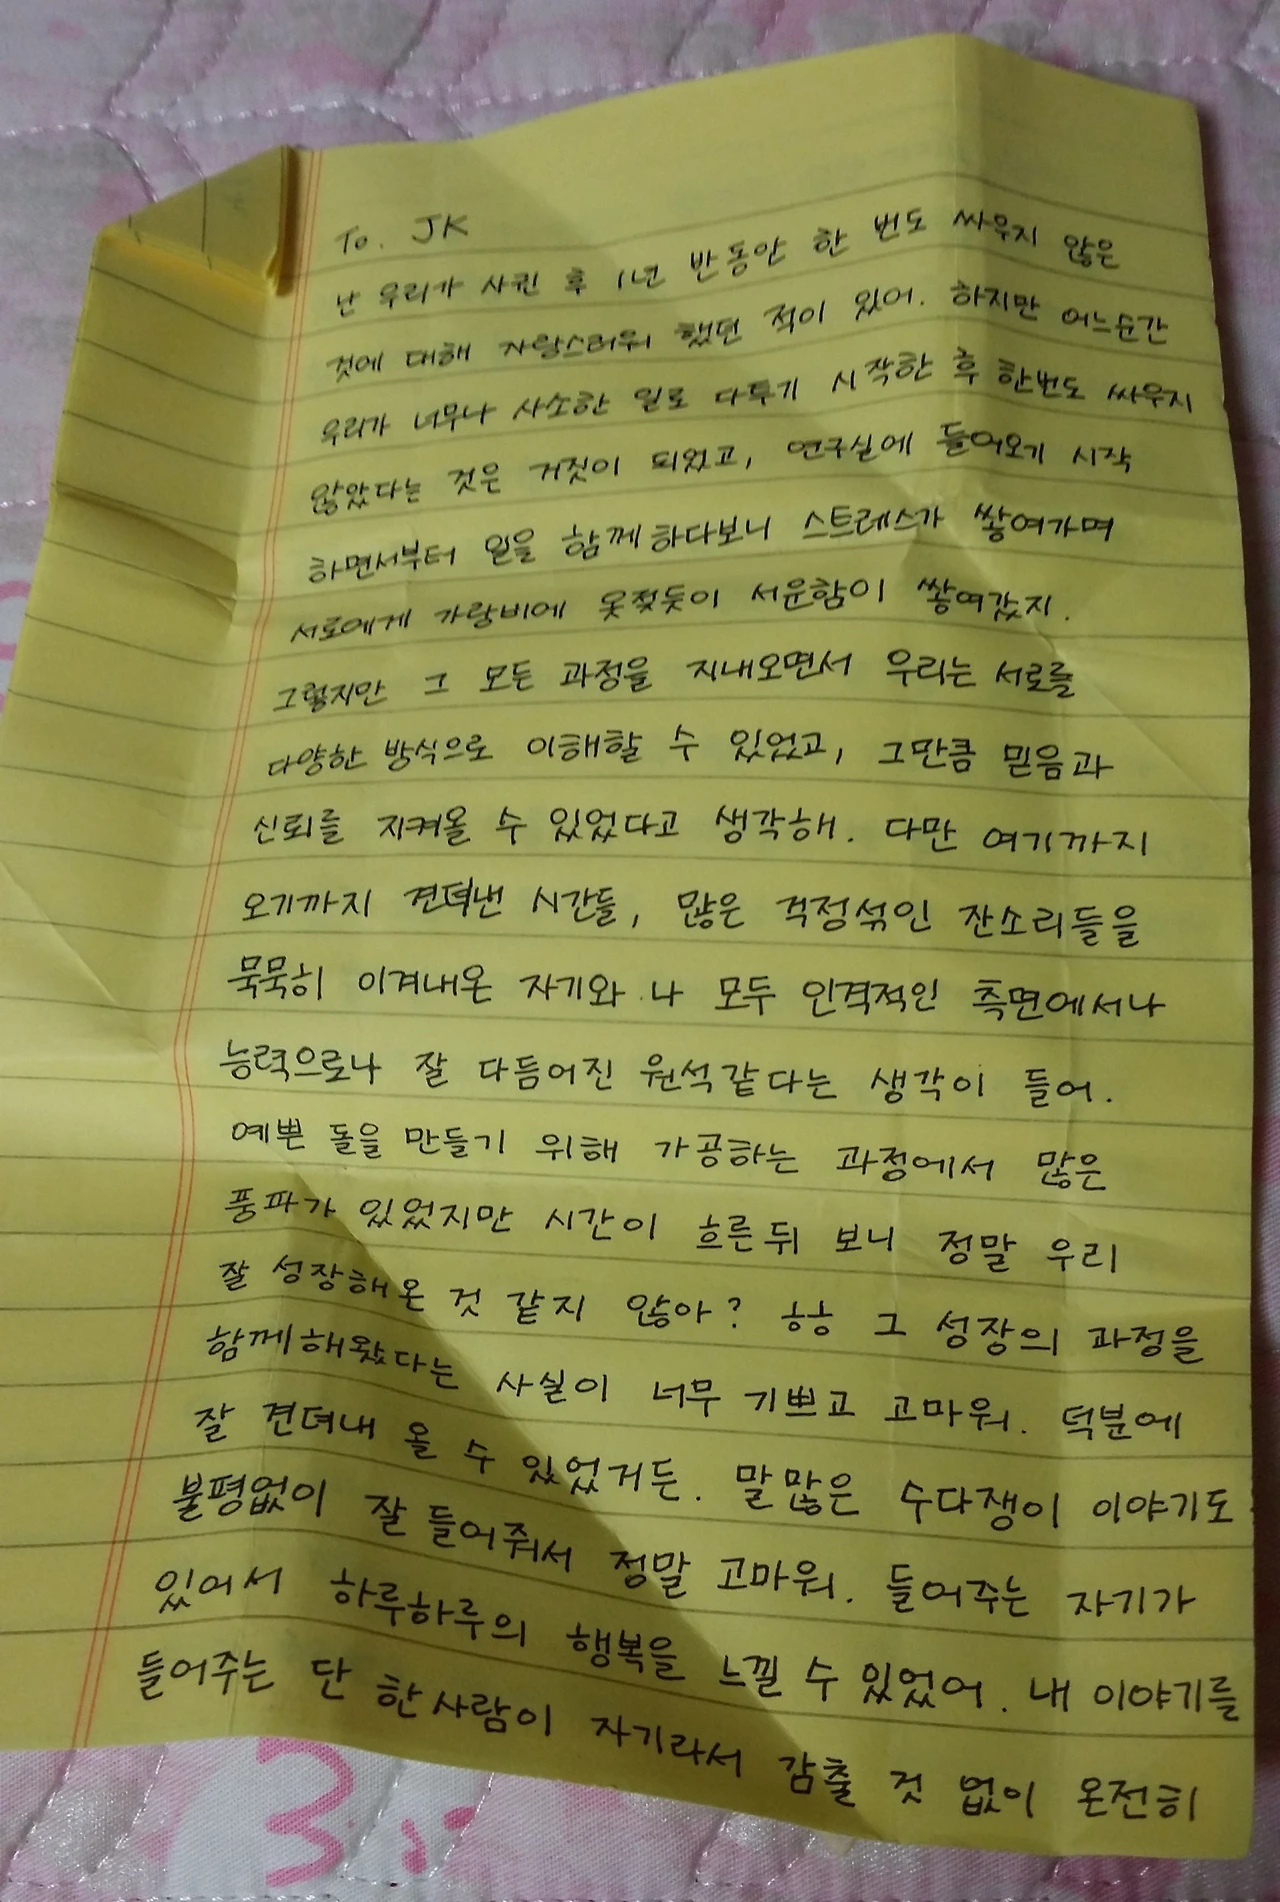 To. JK
난 우리가 사귄 후 1년 반 동안 한 번도 싸우지 않은
것에 대해 자랑스러워 했던 적이 있어. 하지만 어느순간
우리가 너무나 사소한 일로 다투기 시작한 후 한번도 싸우지
않았다는 것은 거짓이 되었고, 연구실에 들어오기 시작
하면서부터 일을 함께 하다보니 스트레스가 쌓여가며
서로에게 가랑비에 옷젖듯이 서운함이 쌓여갔지.
그렇지만 그 모든 과정을 지내오면서 우리는 서로를
다양한 방식으로 이해할 수 있었고, 그만큼 믿음과
신뢰를 지켜올 수 있었다고 생각해. 다만 여기까지
오기까지 견뎌낸 시간들, 많은 걱정섞인 잔소리들을
묵묵히 이겨내온 자기와 나 모두 인격적인 측면에서나
능력으로나 잘 다듬어진 원석같다는 생각이 들어.
예쁜 돌을 만들기 위해 가공하는 과정에서 많은
풍파가 있었지만 시간이 흐른뒤 보니 정말 우리
잘 성장해온 것 같지 않아? ㅎㅎ 그 성장의 과정을
함께해왔다는 사실이 너무 기쁘고 고마워. 덕분에
잘 견뎌내 올 수 있었거든. 말많은 수다쟁이 이야기도
불평없이 잘 들어줘서 정말 고마워. 들어주는 자기가
있어서 하루하루의 행복을 느낄 수 있었어. 내 이야기를
들어주는 단 한사람이 자기라서 감출 것 없이 온전히